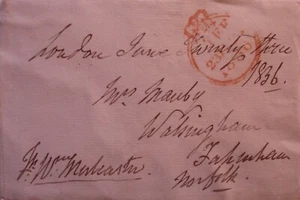 London June twenty three
1836.
Mrs Manby
Walsingham
Fakenham
Norfolk.